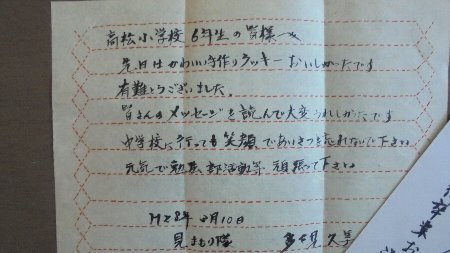 高松小学校 6年生の皆様へ
先日はかわいい手作りクッキーおいしかったです
有難とうございました。
皆さんのメッセージを読んで大変うれしかったです
中学校に行っても笑顔であいさつを忘れないで下さい
元気で勉強 部活動等 頑張って下さい
H28年 月10日
見まもり隊 多 見 久
卒業お